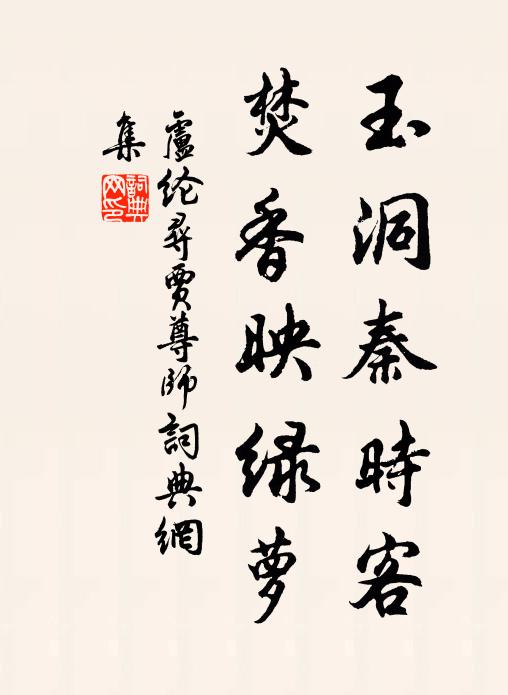 玉洞秦時客
焚香映绿萝
盧纶尋賈尊師詞典網
集
詞典
网印